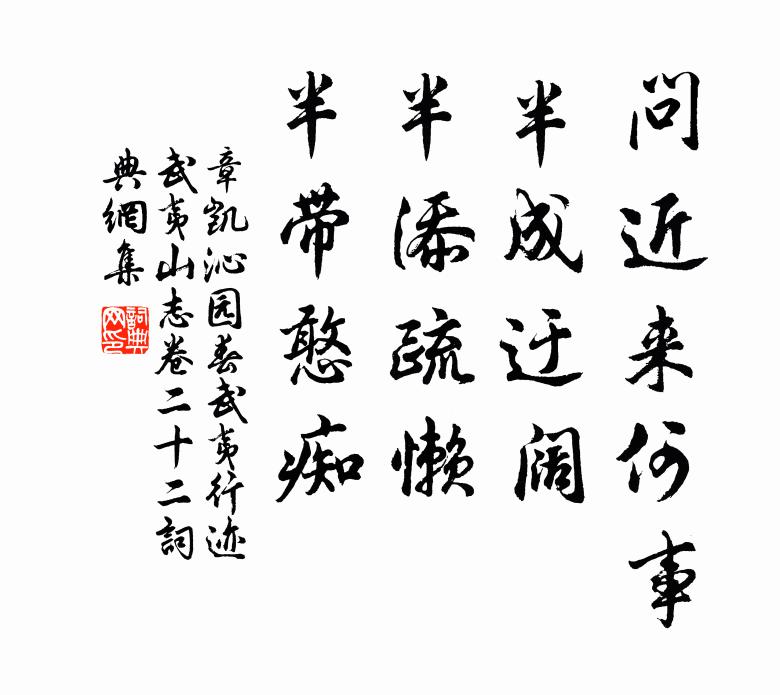 问近来何事
半成迂阔
半添疏懒
半带憨痴
章凯沁园春武夷行迹
武夷山志卷二十二詞
典網集
詞典
网印